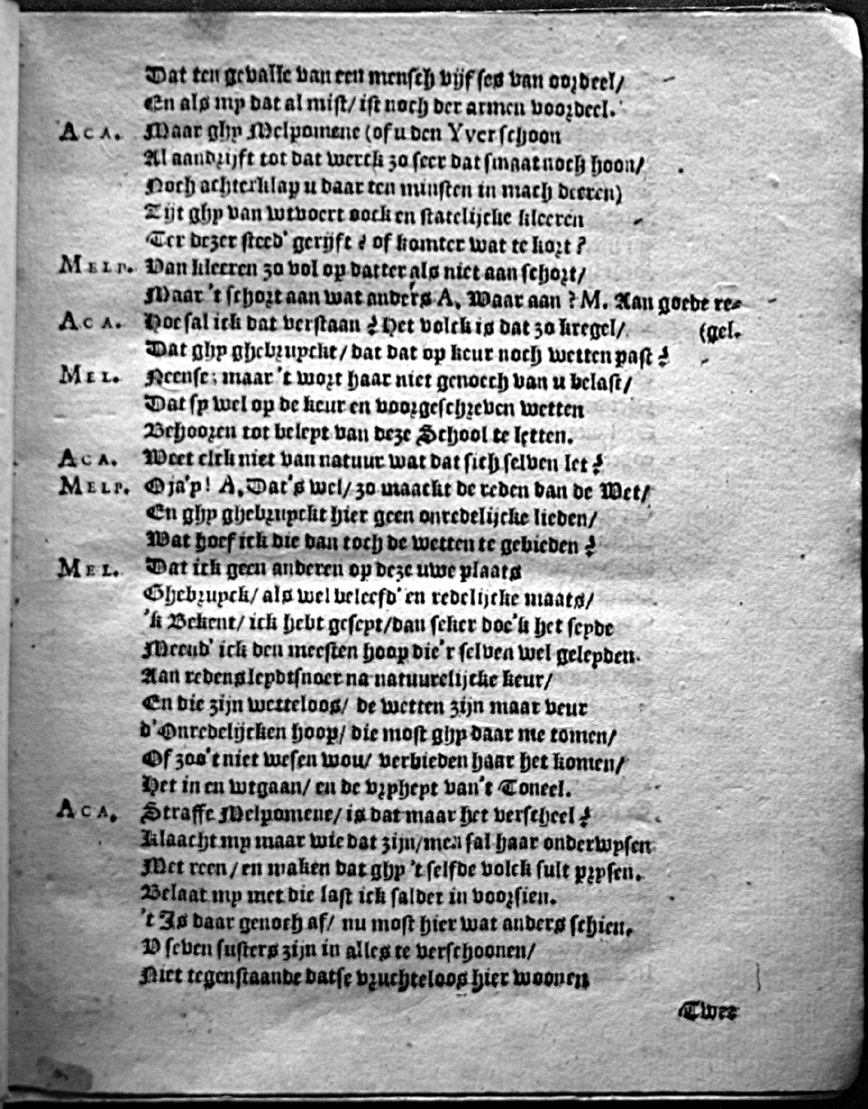 Dat ten gevalle van een mensch vijf ses van oordeel/
En als my dat al mist/ ist noch der armen voordeel.
ACA. Maar ghy Melpomene (of u den Yver schoon
Al aandrijft tot dat werck zo seer dat smaat noch hoon/
Noch achterklap u daar ten minsten in mach deeren)
Zijt ghy van wtvoert oock en statelijcke kleeren
Ter dezer steed' gerijft? of komter wat te kort?
MELP. Van kleeren zo vol op datter als niet aan schort/
Maar 't schort aan wat anders A. Waar aan? M. Aan goede re-
ACA. Hoe sal ick dat verstaan? Het volck is dat zo kregel/ (gel.
Dat ghy ghebruyckt/ dat dat op keur noch wetten past?
MEL. Neense: maar 't wort haar niet genoech van u belast/
Dat sy wel op de keur en voorgeschreven wetten
Behooren tot beleyt van deze School te letten.
ACA. Weet elck niet van natuur wat dat sich selven let?
MELP. Oja'y! A. Dat's wel/ zo maackt de reden dan de Wet/
En ghy ghebruyckt hier geen onredelijcke lieden/
Wat hoef ick die dan toch de wetten te gebieden?
MEL. Dat ick geen anderen op deze uwe plaats
Ghebruyck/ als wel beleefd' en redelijcke maats/
'k Bekent/ ick hebt geseyt/ dan seker doe'k het seyde
Meend' ick den meesten hoop die'r selven wel geleyden.
Aan redens leydtsnoer na natuurelijcke keur/
En die zijn wetteloos/ de wetten zijn maar veur
d'Onredelijcken hoop/ die most ghy daar me tomen/
Of zoo't niet wesen wou/ verbieden haar het komen/
Het in en wtgaan/ en de vryheyt van't Toneel.
ACA. Straffe Melpomene/ is dat maar het verscheel?
Klaacht my maar wie dat zijn/ men sal haar onderwysen
Met reen/ en maken dat ghy 't selfde volck sult prysen.
Belaat my met die last ick salder in voorsien.
't Is daar genoch af/ nu most hier wat anders schien.
V seven susters zijn in alles te verschoonen/
Niet tegenstaande datse vruchteloos hier woonen
Twee